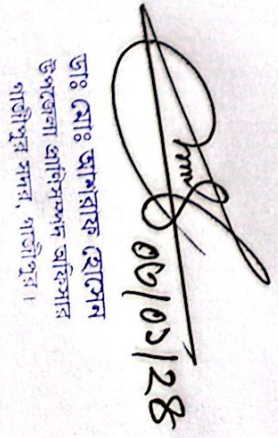 ০৩/০১/২৪
ডাঃ মোঃ আশরাফ হোসেন
উপজেলা প্রাণিসম্পদ অফিসার
গাজীপুর সদর, গাজীপুর।